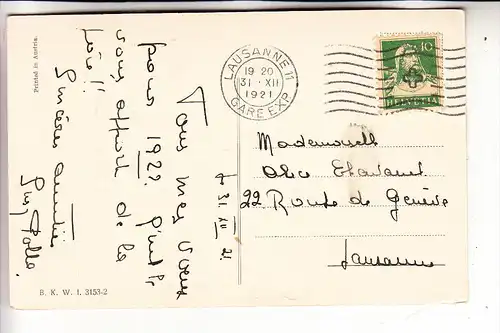 Printed in Austria.
Tous mes vœux
pour 1922. Qu'il
vous apporte de la
joie!!
Sincères amitiés
t. 31. XII. 21.
B. K. W. I. 3153-2
LAUSANNE 11
19 20
31 · XII
1921
GARE EXP.
10
HELVETIA
Mademoiselle
Alice
22. Route de Genève
Lausanne